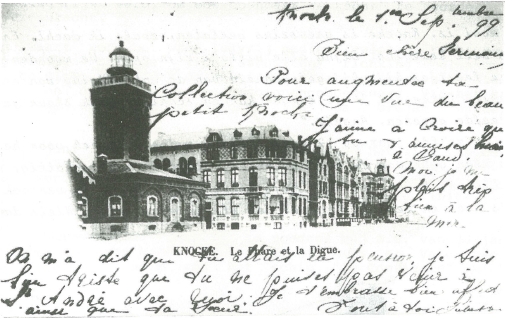 Knock, le 1er Septembre 99
Bien chère Germaine
Pour augmenter ta
Collection voici une vue du beau
petit Knock.
J'aime à croire que
tu t'amuses bien
à Gand.
Moi je me
plais très
bien à la
mer.
KNOCKE. Le Phare et la Digue.
On m'a dit que tu allais en pension, je suis
bien triste que tu ne puisses pas venir à
St André avec moi. Je t'embrasse bien
ainsi que ta sœur. Tout à toi